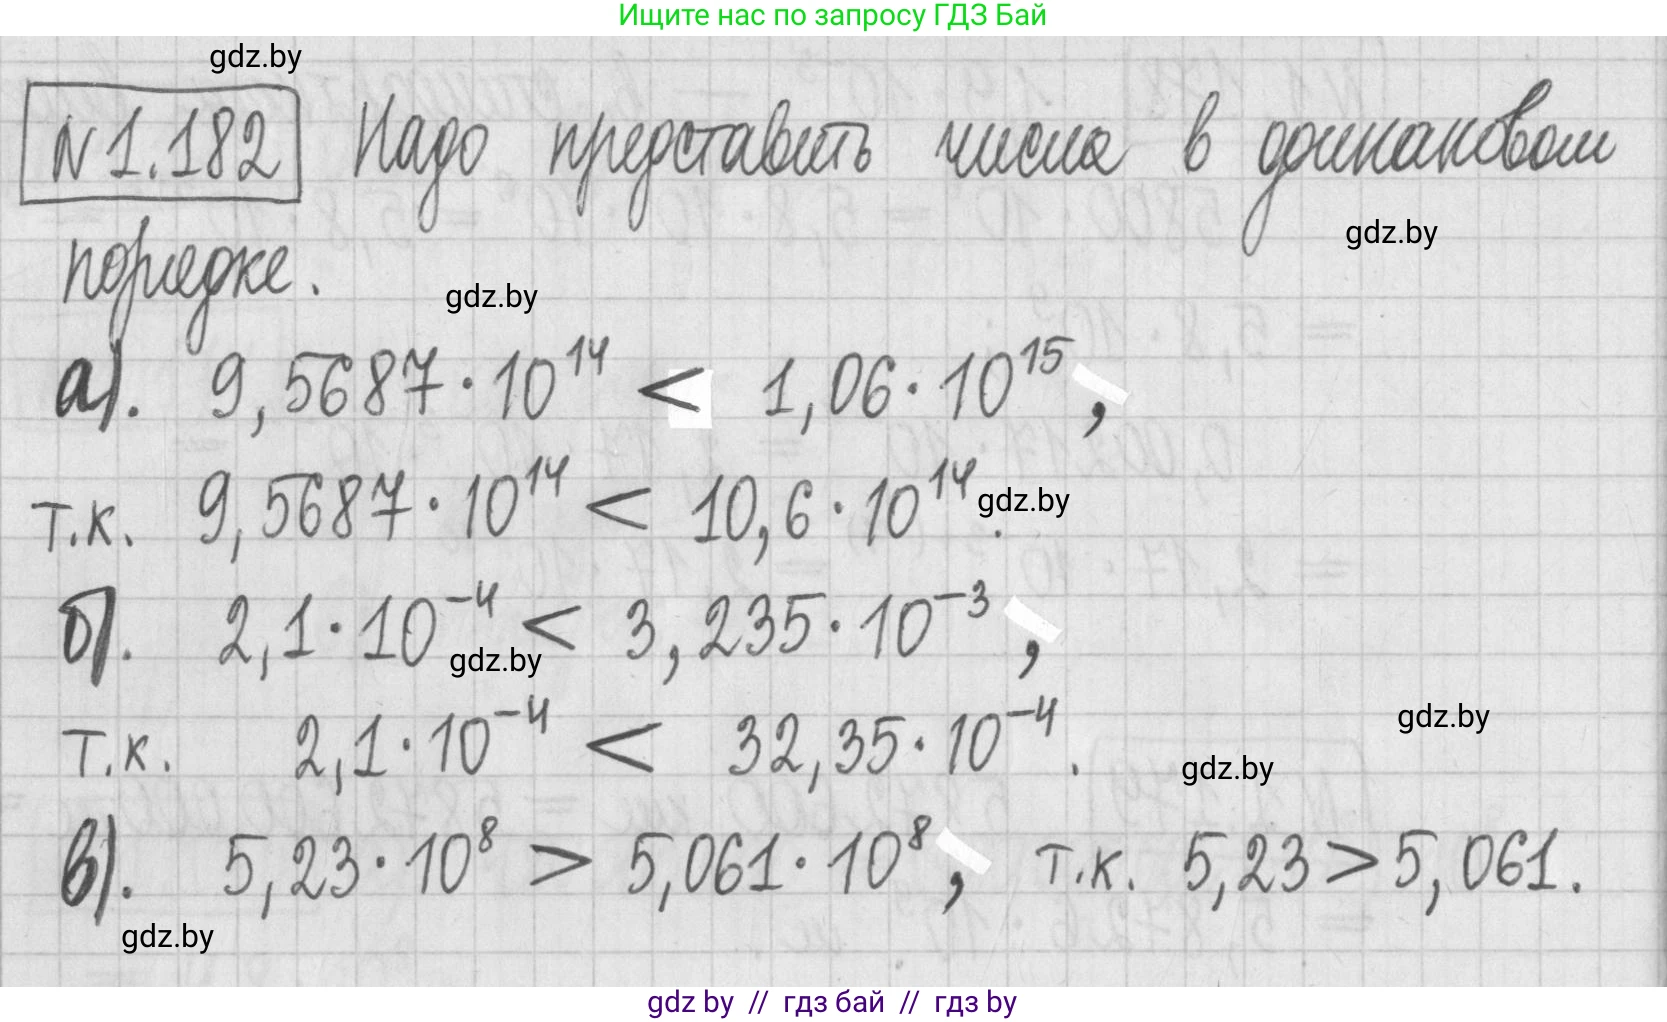 Ищите нас по запросу ГДЗ Бай
gdz.by
№1.182 Надо представить числа в одинаковом
gdz.by
порядке.
gdz.by
а). 9,5687·10¹⁴ < 1,06·10¹⁵,
т.к. 9,5687·10¹⁴ < 10,6·10¹⁴.
gdz.by
б). 2,1·10⁻⁴ < 3,235·10⁻³,
gdz.by
т.к. 2,1·10⁻⁴ < 32,35·10⁻⁴.
gdz.by
gdz.by
в). 5,23·10⁸ > 5,061·10⁸, т.к. 5,23 > 5,061.
gdz.by
gdz by // гдз бай // гдз by